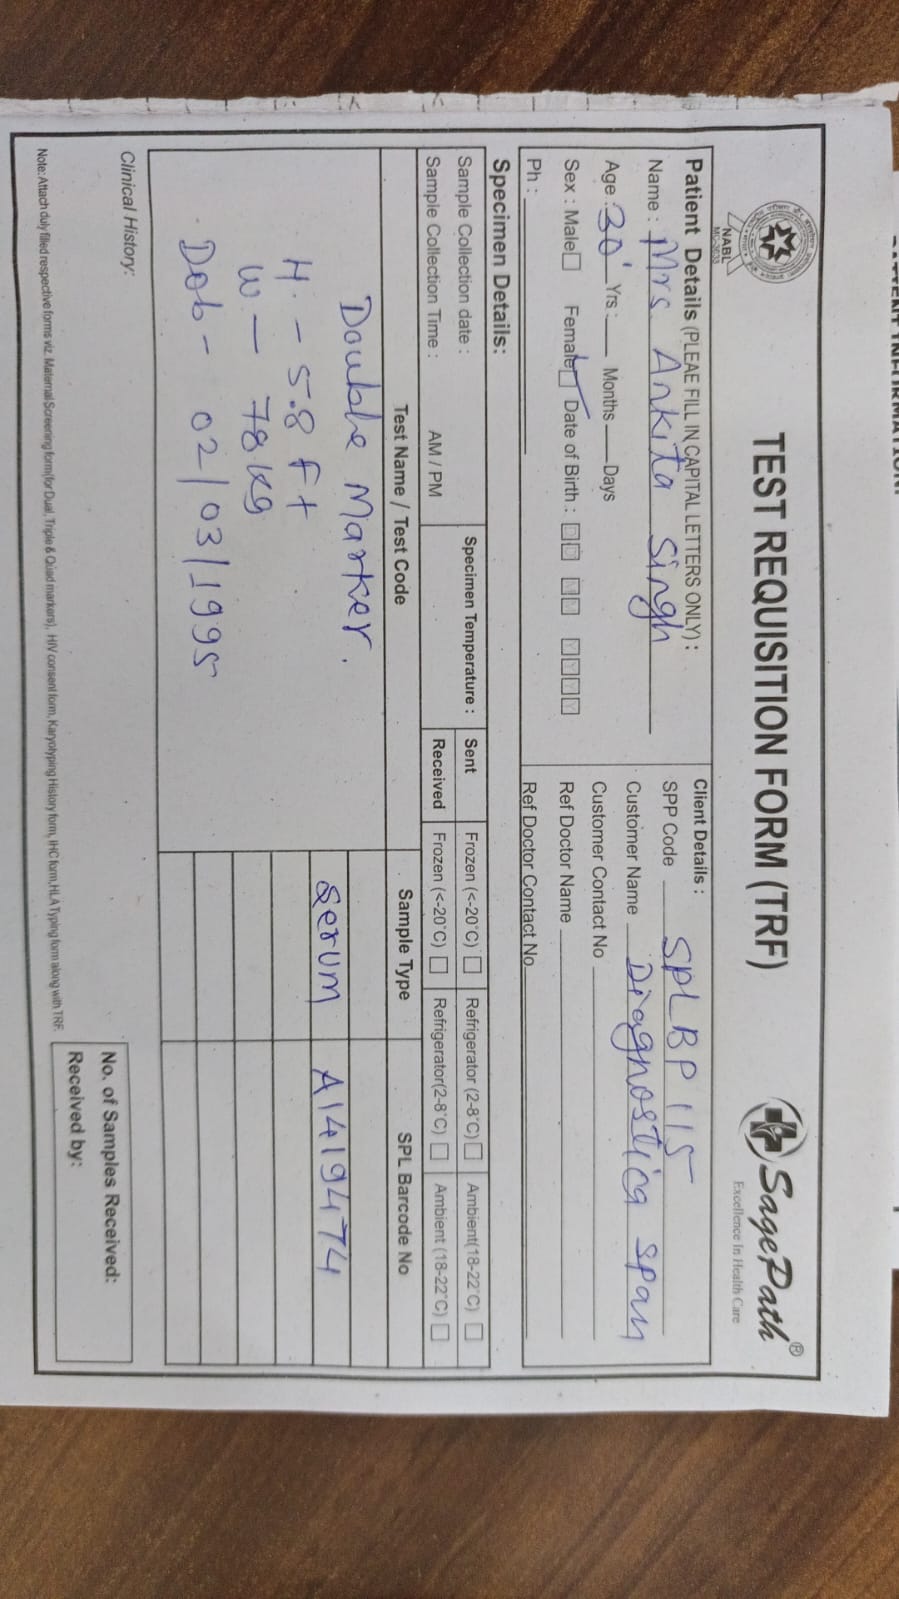 TEST REQUISITION FORM (TRF)
NABL
MC-2633
SagePath®
Excellence In Health Care
Patient Details (PLEAE FILL IN CAPITAL LETTERS ONLY) :
Name : Mrs Ankita Singh
Age : 30 Yrs : Months Days
Sex : Male Female Date of Birth : D D M M Y Y Y Y
Ph :
Client Details :
SPP Code SPL BP 115
Customer Name Diagnostica span
Customer Contact No
Ref Doctor Name
Ref Doctor Contact No
Specimen Details:
Sample Collection date :
Sample Collection Time : AM / PM
Specimen Temperature :
Sent Frozen (<-20°C) Refrigerator (2-8°C) Ambient(18-22°C)
Received Frozen (<-20°C) Refrigerator(2-8°C) Ambient (18-22°C)
Test Name / Test Code Sample Type SPL Barcode No
Double Marker.
Serum A1419474
H. - 5.8 ft
W. - 78 kg
Dob - 02/03/1995
Clinical History:
No. of Samples Received:
Received by:
Note: Attach duly filled respective forms viz. Maternal Screening form(for Dual, Triple & Quad markers), HIV consent form, Karyotyping History form, IHC form, HLA Typing form along with TRF.